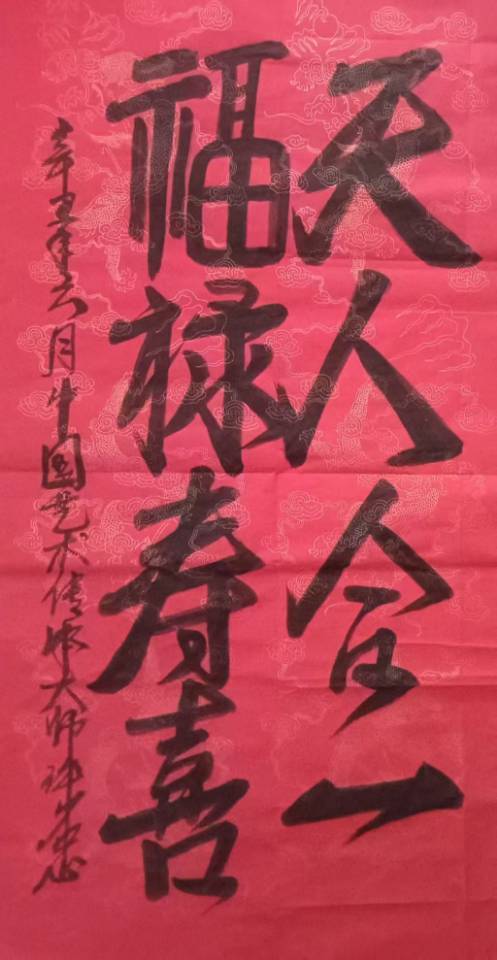 天人合一
福禄寿喜
辛丑年六月中国艺术传承大师许忠